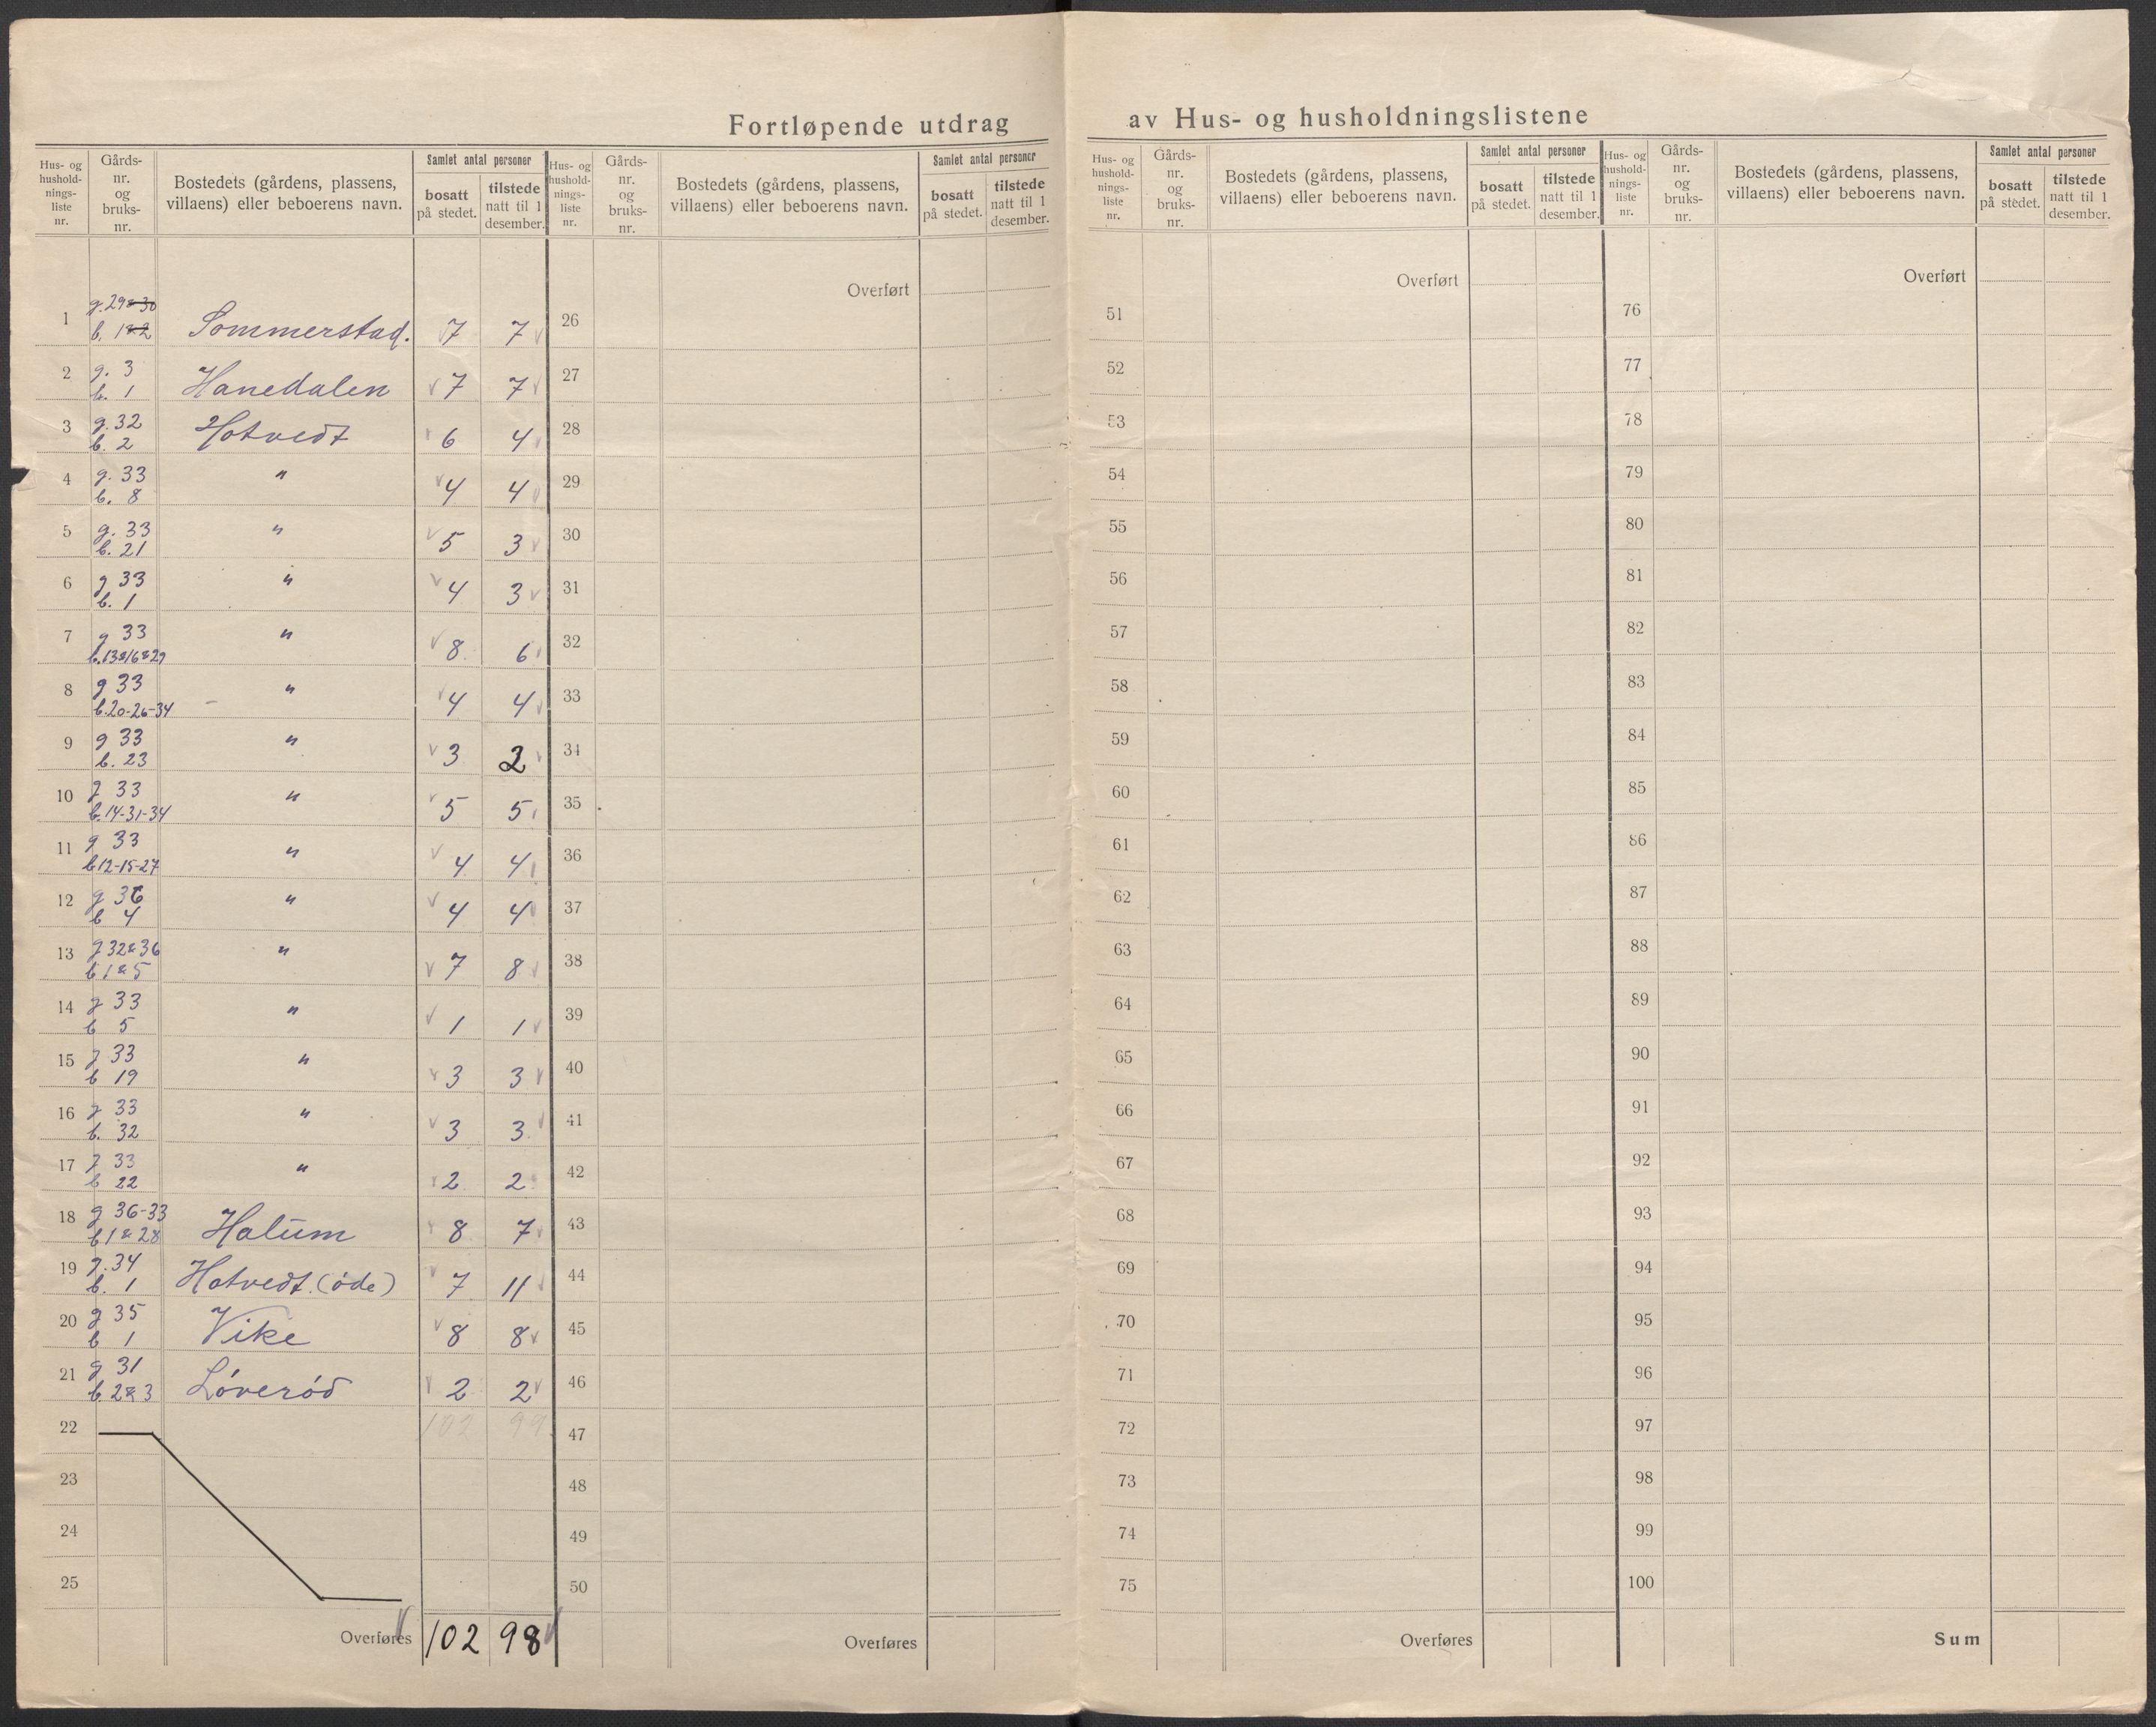 Fortløpende utdrag av Hus- og husholdningslistene
Hus- og hushold-nings-liste nr. | Gårds-nr. og bruks-nr. | Bostedets (gårdens, plassens, villaens) eller beboerens navn. | Samlet antal personer | bosatt på stedet. | tilstede natt til 1 desember.
1 | g. 29 & 30 b. 1 & 2 | Sommerstad. | 7 | 7
2 | g. 3 b. 1 | Hanedalen | 7 | 7
3 | g. 32 b. 2 | Hotvedt | 6 | 4
4 | g. 33 b. 8 | " | 4 | 4
5 | g. 33 b. 21 | " | 5 | 3
6 | g 33 b. 1 | " | 4 | 3
7 | g 33 b. 13 & 16 & 29 | " | 8 | 6
8 | g 33 b. 20-26-34 | " | 4 | 4
9 | g 33 b. 23 | " | 3 | 2
10 | g 33 b. 14-31-34 | " | 5 | 5
11 | g 33 b 12-15-27 | " | 4 | 4
12 | g 36 b 4 | " | 4 | 4
13 | g 32 & 36 b 1 & 5 | " | 7 | 8
14 | g 33 b 5 | " | 1 | 1
15 | g 33 b 19 | " | 3 | 3
16 | g 33 b. 32 | " | 3 | 3
17 | g 33 b 22 | " | 2 | 2
18 | g 36-33 b 1 & 28 | Halum | 8 | 7
19 | g. 34 b. 1 | Hotvedt. (øde) | 7 | 11
20 | g 35 b 1 | Vike | 8 | 8
21 | g 31 b. 2 & 3 | Løverød | 2 | 2
22 | 102 | 99
23
24
25
Overføres | 102 | 98
Hus- og hushold-nings-liste nr. | Gårds-nr. og bruks-nr. | Bostedets (gårdens, plassens, villaens) eller beboerens navn. | Samlet antal personer | bosatt på stedet. | tilstede natt til 1 desember.
Overført
26
27
28
29
30
31
32
33
34
35
36
37
38
39
40
41
42
43
44
45
46
47
48
49
50
Overføres
Hus- og hushold-nings-liste nr. | Gårds-nr. og bruks-nr. | Bostedets (gårdens, plassens, villaens) eller beboerens navn. | Samlet antal personer | bosatt på stedet. | tilstede natt til 1 desember.
Overført
51
52
53
54
55
56
57
58
59
60
61
62
63
64
65
66
67
68
69
70
71
72
73
74
75
Overføres
Hus- og hushold-nings-liste nr. | Gårds-nr. og bruks-nr. | Bostedets (gårdens, plassens, villaens) eller beboerens navn. | Samlet antal personer | bosatt på stedet. | tilstede natt til 1 desember.
Overført
76
77
78
79
80
81
82
83
84
85
86
87
88
89
90
91
92
93
94
95
96
97
98
99
100
Sum